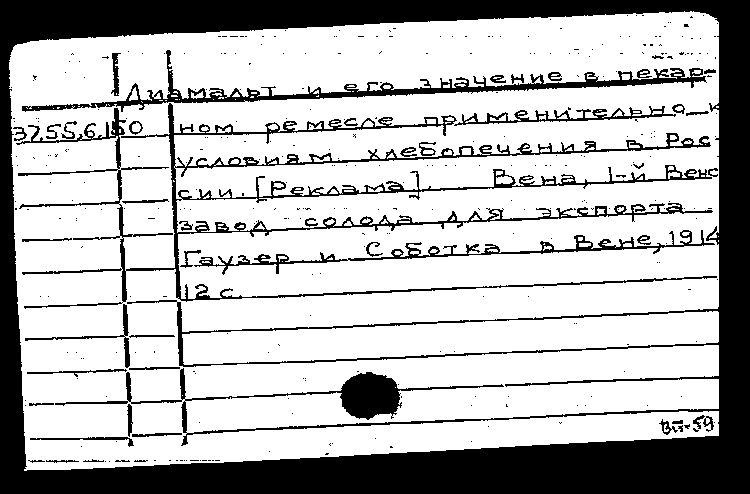 Диамальт и его значение в пекар-
37.55.6.150 ном ремесле применительно к
условиям хлебопечения в Рос-
сии. [Реклама]. Вена, 1-й Венс
завод солода для экспорта
Гаузер и Соботка в Вене, 1914
12 с.